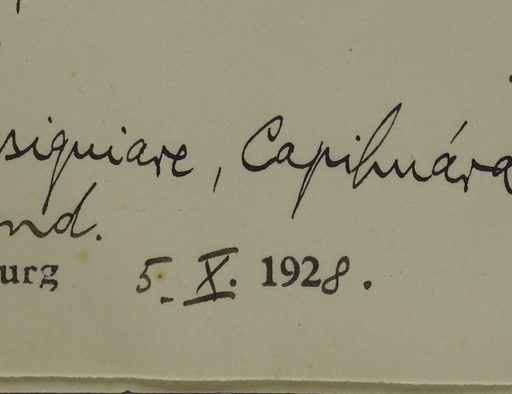 siquiare, Capihuára
nd.
urg 5. X. 1928.